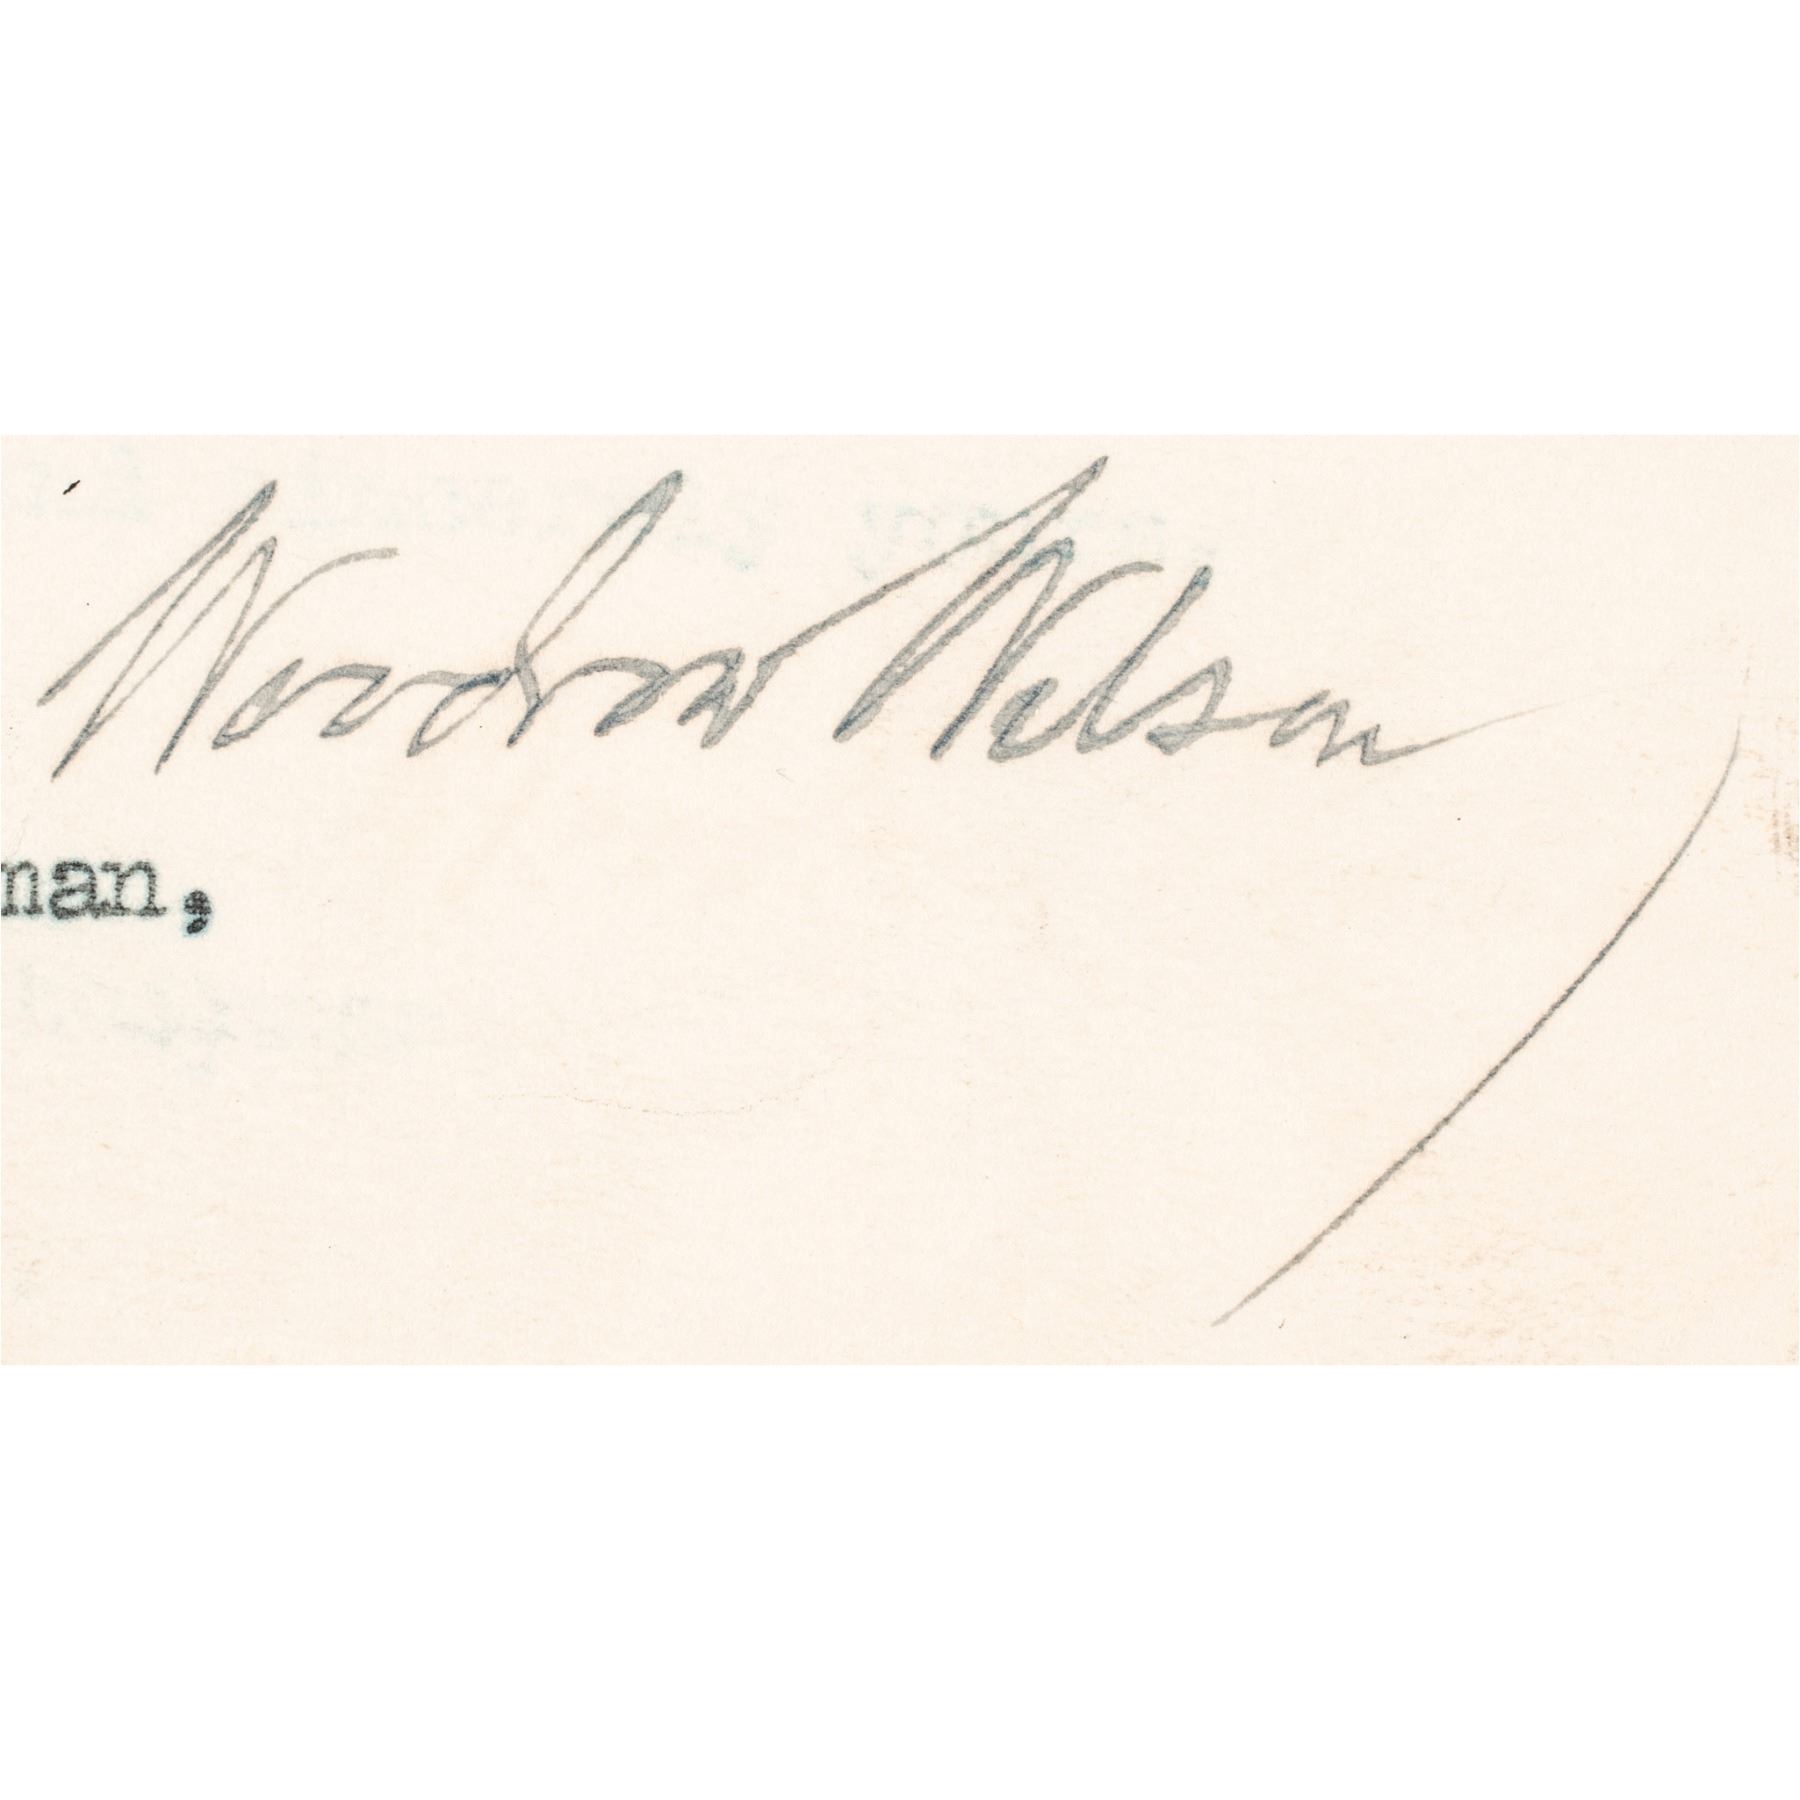 Woodrow Wilson
man,